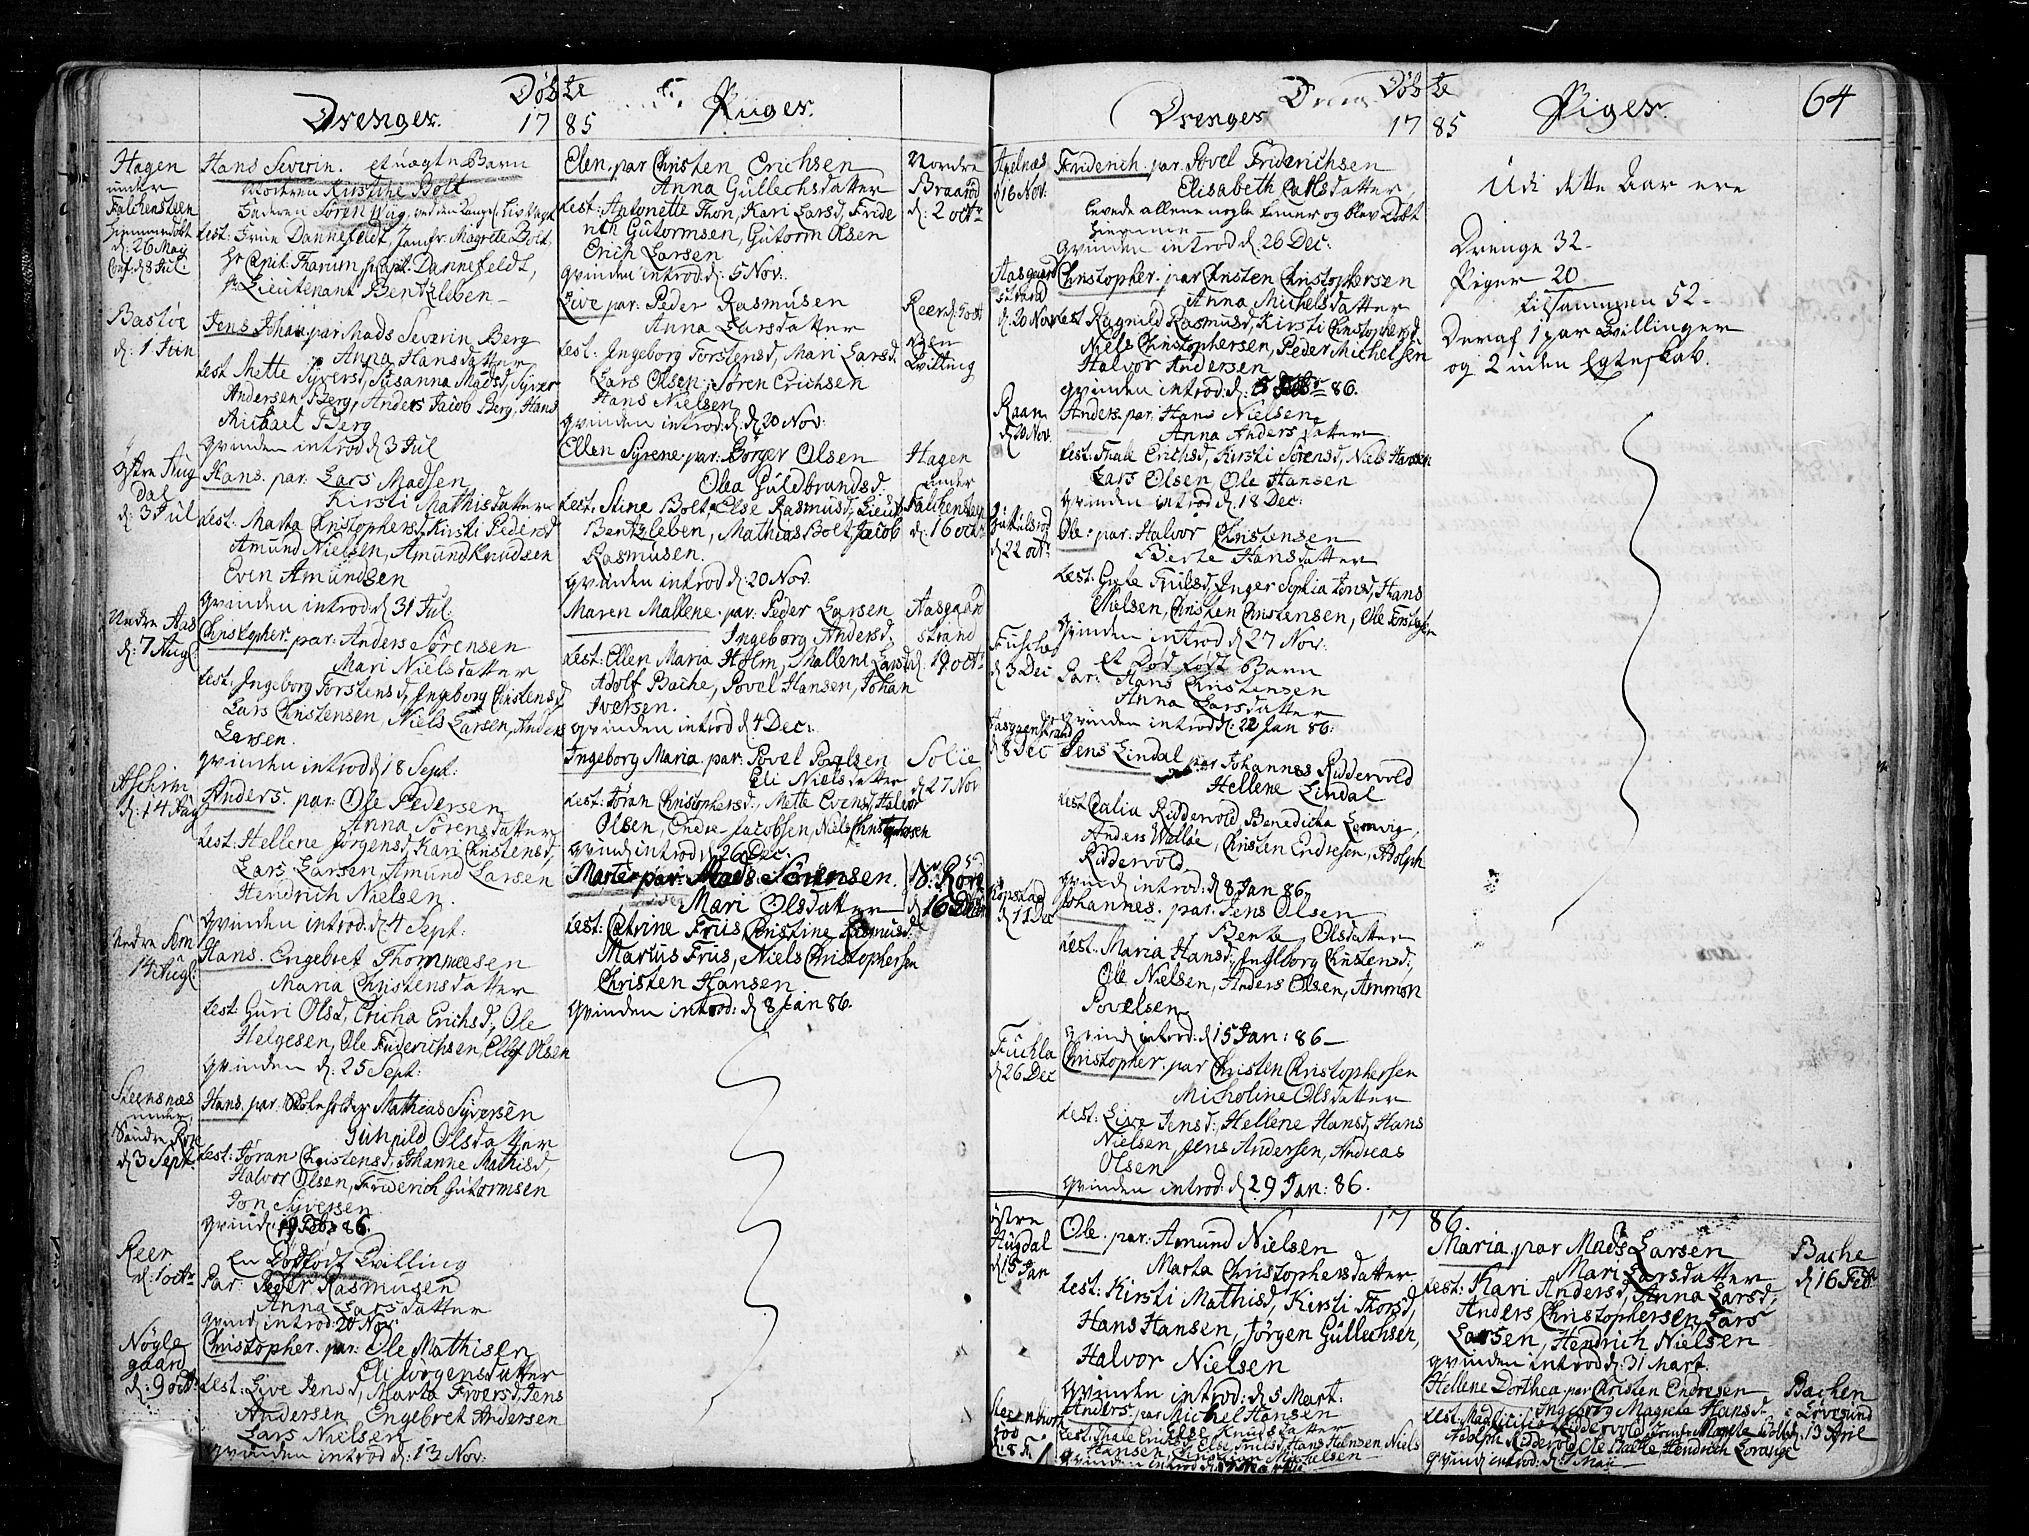 Døbte
Drenger. 1785 Piiger.
Hagen
under
Falchensteen
hjemmedøbt
d: 26 Maij
Conf: d 8 Jul:
Hans Severin. et uægte Barn
Moderen Kirstine Bolt
Faderen Søren Wug
test: Frue Dannefeldt, Jomfr: Magrete Bolt,
Hr Capit. Tharum, Hr Capit. Dannefeldt,
Hr Lieutenant Bentzleben
Bastøe
d: 1 Jun
Jens Johan par Mads Severin Berg
Anna Hansdatter
test Mette Syversd, Susanna Madsd, Syver
Andersen Berg, Anders Jacob Berg, Hans
Michael Berg
qvinden introd d 3 Jul
østre Aug
dal
d: 3 Jul
Hans. par: Lars Madsen
Kirsti Mathisdatter
test: Marta Christophersd, Kirsti Pedersd
Amund Nielsen, Amund Knudsen
Even Amundsen
qvinden introd d 31 Jul:
Nedre Aas
d: 7 Aug
Christopher. par: Anders Sørensen
Mari Nielsdatter
test: Ingeborg Torstensd, Ingeborg Christensd,
Lars Christensen, Niels Larsen, Anders
Larsen.
qvinden introd d 18 Sept:
Aschim
d: 14 Aug
Anders. par: Ole Pedersen
Anna Sørensdatter
test: Hellene Jørgensd, Kari Christensd,
Lars Larsen, Amund Larsen
Hendrich Nielsen.
qvinden introd: d: 4 Sept:
Nedre Sem
14 Aug:
Hans. Engebret Thommesen
Maria Christensdatter
test: Guri Olsd, Ericha Erichsd, Ole
Helgesen, Ole Friderichsen, Ellef Olsen
qvinden d: 25 Sept:
Steensnæs
under
Søndre Rore
d 3 Sept:
Hans. par: Mathias Syversen
Gunhild Olsdatter
test: Jøran Christensd, Johanne Mathisd,
Halvor Olsen, Friderich Gutormsen
Jon Syversen.
qvind 86.
Reer
d: 1 octr
En dødfødt Tvilling
Par: Peder Rasmusen
Anna Larsdatter
qvind introd: 20 Nov:
Nøgle
gaard
d: 9 octr
Christopher. par: Ole Mathisen
Eli Jørgensdatter
test: Live Jensd, Marta Iversd, Jens
Andersen, Engebret Andersen
Lars Nielsen
qvinden introd d: 13 Nov:
Elen, par Christen Erichsen
Anna Gullechsdatter
test: Antonette Thon, Kari Larsd, Fride
rich Gutormsen, Gutorm Olsen
Erich Larsen
qvinden introd: d: 5 Nov:
Nordre
Braarød
d: 2 octr
Live par: Peder Rasmusen
Anna Larsdatter
test: Ingeborg Torstensd, Mari Larsd
Lars Olsen, Søren Erichsen
Hans Nielsen
qvinden introd: d: d 20 Nov:
Reer d: 1 octr
Een
Tvilling
Ellen Syrene par: Børger Olsen
Olea Guldbrandsd.
test: Stine Bolt, Else Rasmusd, Lieut
Bentzleben, Mathias Bolt, Jacob
Rasmusen.
qvinden introd d: 20 Nov:
Hagen
under
Falchensteen
d: 16 octr
Maren Mallene par: Peder Larsen
Ingeborg Andersd.
test: Ellen Maria Holm, Mallene Larsd
Adolf Bache, Povel Hansen, Johan
Iversen.
qvinden introd d 4 Dec:
Aasgaard
strand
d: 19 octr
Ingeborg Maria par: Povel Povelsen
Eli Nielsdatter
test: Jøran Christophersd:, Mette Evensd, Halvor
Olsen, Endre Jacobsen, Niels Christophersen
qvind introd d 26 Dec:
Solie
d 27 Nov
Marte par: Mads Sørensen
Mari Olsdatter
test: Catrine Friis, Christine Rasmusd:
Marius Friis, Niels Christophersen
Christen Hansen
qvinden introd: d 8 Jan 86.
Nr: Rore
d 16 Decr
Døbte
Drenger 1785 Piger. 64
Apelnæs
d 16 Nov:
Friderich. par. Povel Friderichsen
Elisabeth Carlsdatter
levede allene nogle timer og blev døbt
hiemme
qvinden introd d 26 Dec:
Aasgaard
strand
d: 20 Nov
Christopher. par Christen Christophersen
Anna Michelsdatter
test Ragnild Rasmusd, Kirsti Christophersd,
Niels Christophersen, Peder Michelsen
Halvor Andersen
qvinden introd: d: 86.
Raan
d 20 Nov.
Anders. par: Hans Nielsen
Anna Andersdatter
test: Thale Erichsd, Kirsti Sørensd, Niels Hansen
Lars Olsen, Ole Hansen
qvinden introd d: 18 Dec:
d 22 octr
Ole. par: Halvor Christensen
Berte Hansdatter
test: Grete Truilsd, Inger Sophia Jonsd, Hans
Nielsen, Christen Christensen, Ole Torstensen
qvinden introd d 27 Nov:
d 3 Dec
Et Død født Barn
Par: Hans Christensen
Anna Larsdatter
qvinden introd d: 22 Jan 86:
Aasgaardstrand
d 8 Dec
Jens Lindal par Johannes Riddervold
Hellene Lindal
test Cealia Riddervold, Benedicha Lemvig,
Anders Welløe, Christen Endresen, Adolph
Riddervold
qvind introd: d 8 Jan 86.
Kopstad
d 11 Dec
Johannes. par. Jens Olsen
Bente Olsdatter
test: Maria Hansd:, Ingeborg Christensd:,
Ole Nielsen, Anders Olsen, Ammon
Povelsen
qvind introd: d 15 Jan: 86
Fuchla
d 26 Dec
Christopher. par Christen Christophersen
Micheline Olsdatter
test: Live Jensd:, Hellene Hansd, Hans
Nielsen, Jens Andersen, Andreas
Olsen
qvinden introd: d 29 Jan: 86.
Udi dette Aar ere
Drenge 32
Piger 20
tilsammen 52
Deraf 1 par Tvillinger
og 2 uden Egteskab.
1786
østre
Augdal
d 15 Jan
Ole. par: Amund Nielsen
Marta Christophersdatter
test: Kirsti Mathisd, Kirsti Thorsd,
Hans Hansen, Jørgen Gullechsen,
Halvor Nielsen
qvinden introd: d 5 Mart:
Anders. par Michel Hansen
Else Knudsdatter
test: Thale Erichsd, Else Truilsd, Hans Hansen, Niels
Hansen, Christian Michelsen
qvinden introd d
Maria, par Mads Larsen
Mari Larsdatter
test: Kari Andersd, Anna Larsd,
Anders Christophersen, Lars
Larsen, Hendrich Nielsen
qvinden introd d: 31 Mart.
Bache
d 16 Feb
Hellene Dorthea par Christen Endresen
Ingeborg Magreta Hansd.
test: Riddervold, Jomfr Magrete Bolt
Adolph Riddervold, Ole Bache, Hendrich Lorange
qvind introd: d: Maij
Bachen
i Løvesund
d. 13 April